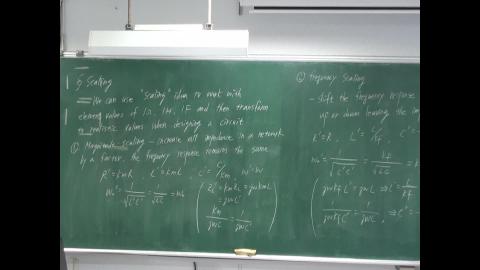 § Scaling
- We can use "scaling" idea to work with
element values of 1Ω, 1H, 1F and then transform
to realistic values when designing a circuit
① Magnitude scaling - increase all impedance in a network
by a factor, the frequency response remains the same
R' = kmR , L' = kmL , C' = C/km , w' = w
w₀' = 1/√(L'C') = 1/√(LC) = w₀
Z'L = kmZL = jwkmL
= jwL'
km/jwC = 1/jwC'
② Frequency Scaling
- shift the frequency response
up or down leaving the
R' = R , L' = L/kf , C' =
w₀' = 1/√(L'C') = kf/√(LC) =
jwkfL' = jwL ⇒ L' = L/kf
1/jwkfC' = 1/jwC ⇒ C' =